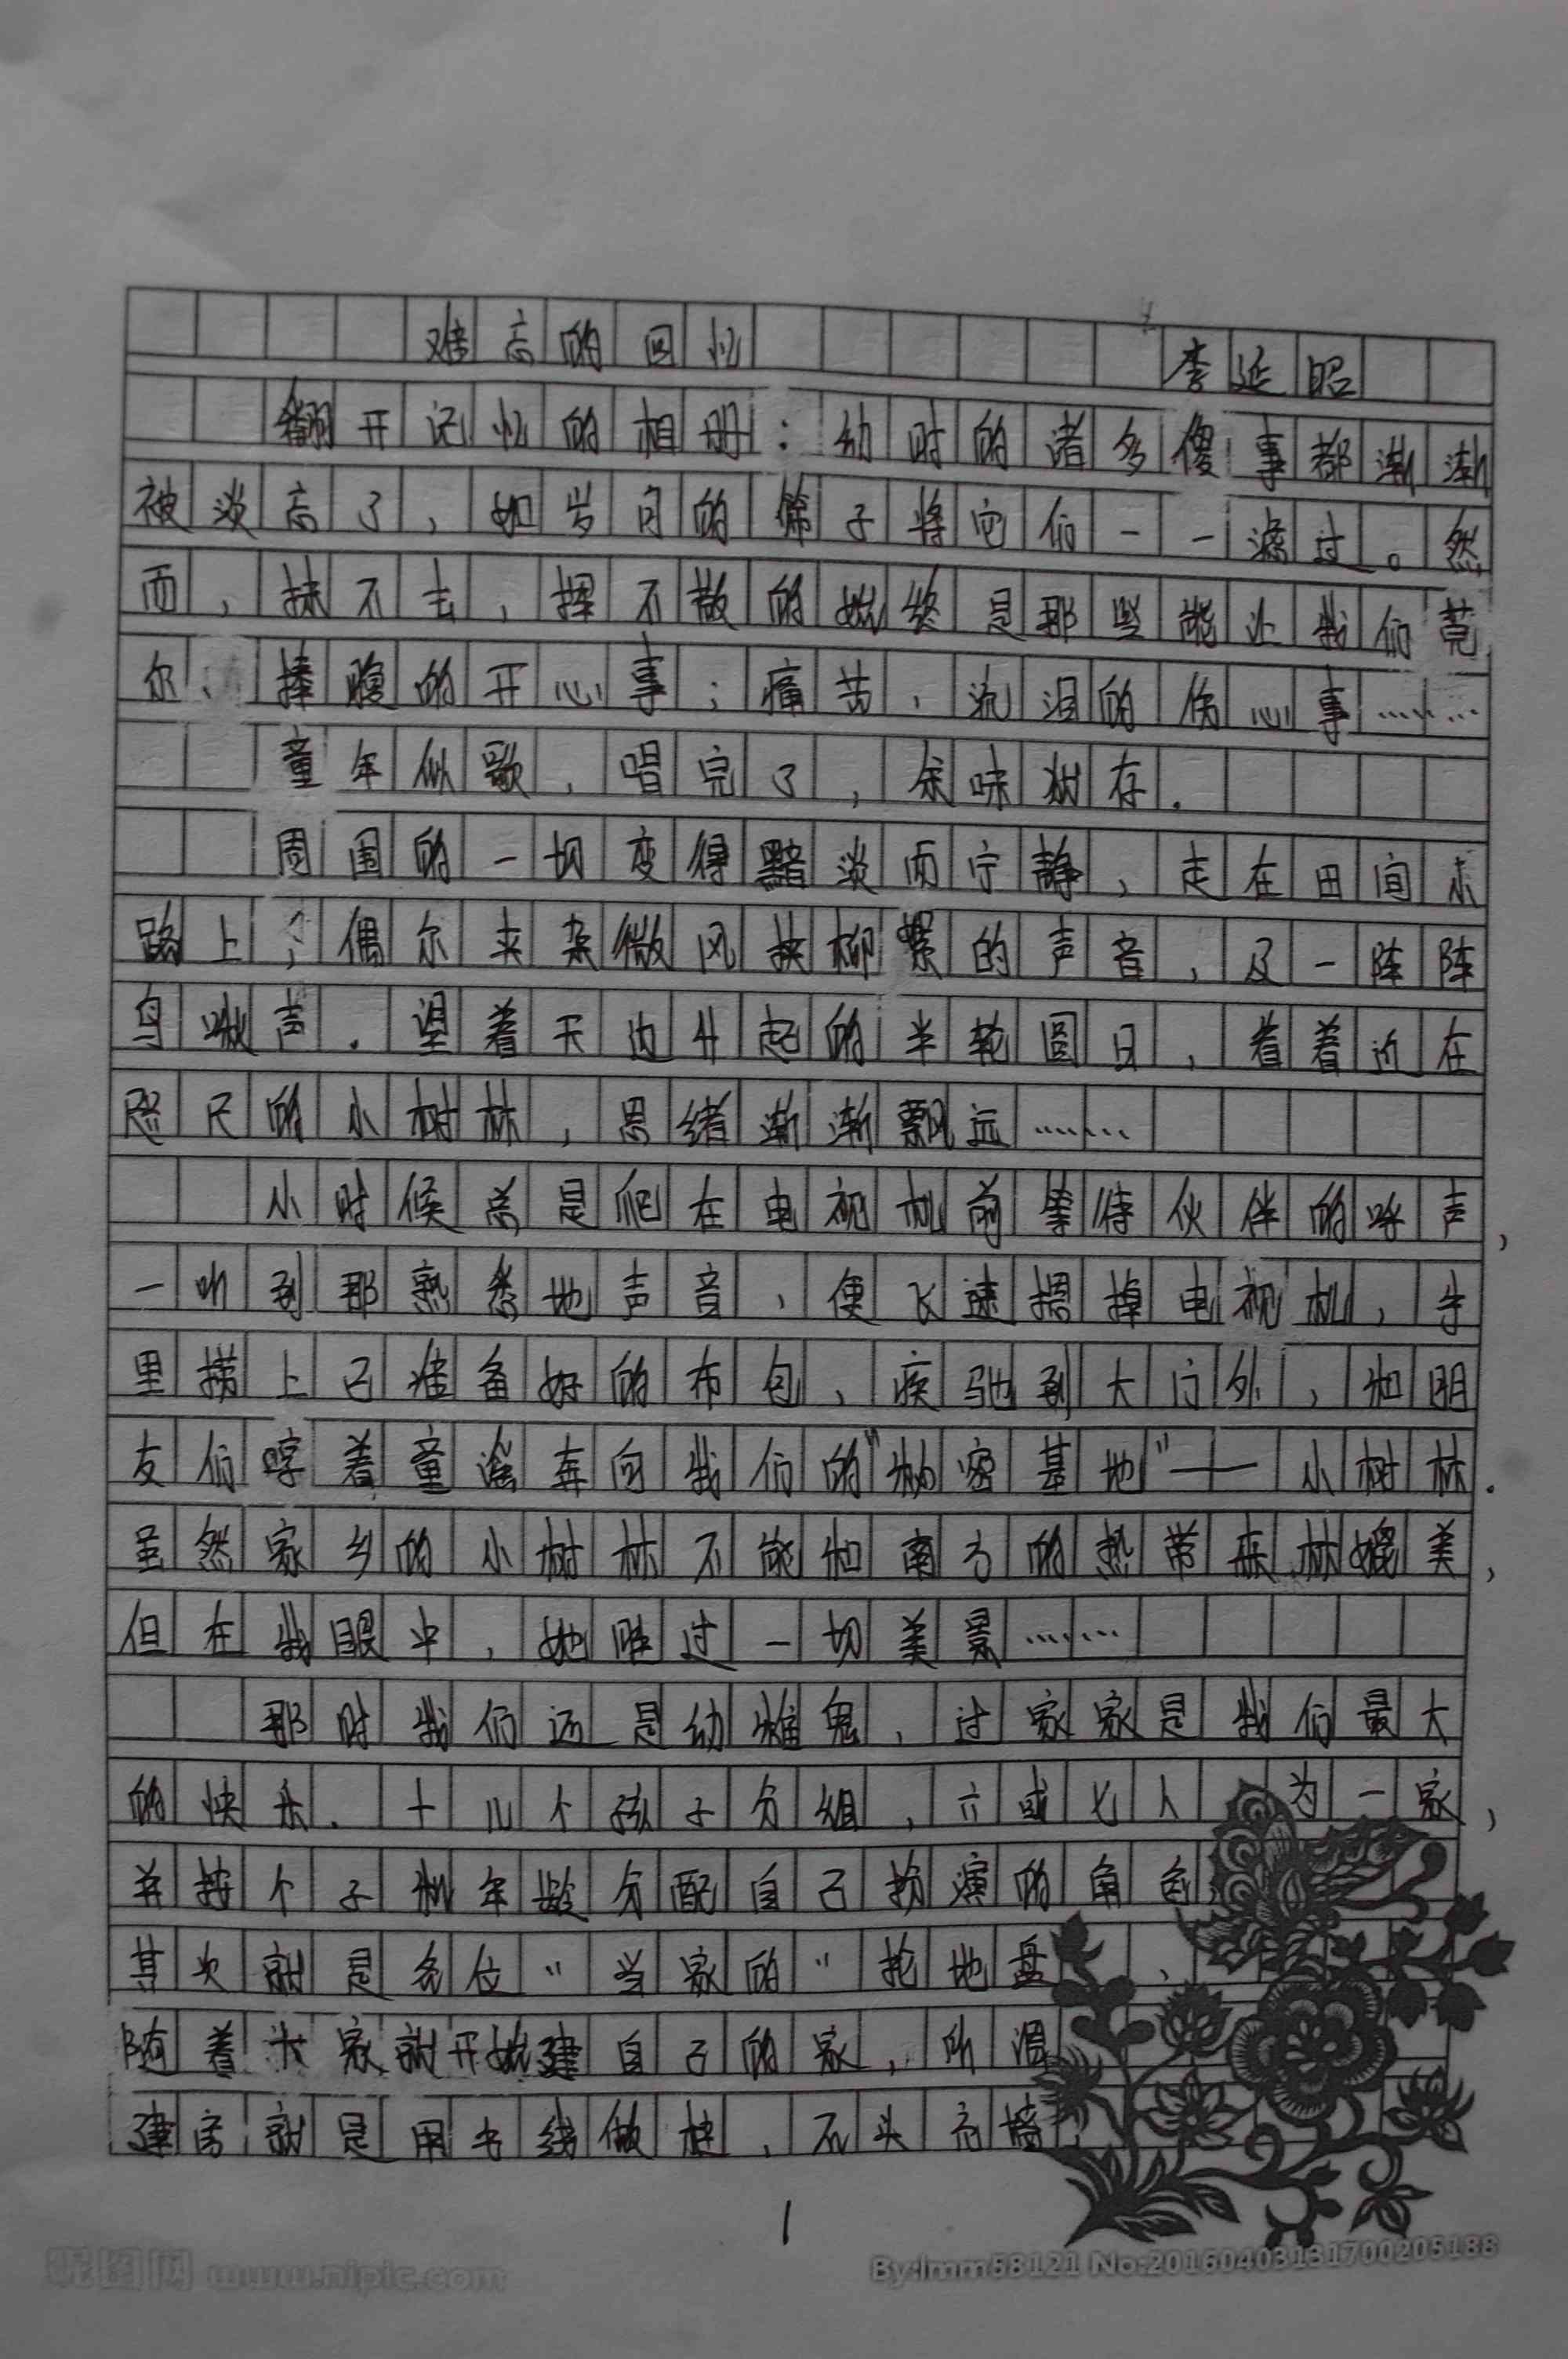 难忘的回忆 李延昭
翻开记忆的相册：幼时的诸多傻事都渐渐
被淡忘了，如岁月的筛子将它们一一滤过。然
而，抹不去，挥不散的始终是那些能让我们莞
尔、捧腹的开心事；痛苦，流泪的伤心事……
童年似歌，唱完了，余味犹存.
周围的一切变得黯淡而宁静，走在田间小
路上，偶尔夹杂微风挟柳絮的声音，及一阵阵
鸟啾声.望着天边升起的半轮圆日，看着近在
咫尺的小树林，思绪渐渐飘远……
小时候总是爬在电视机前等待伙伴的呼声，
一听到那熟悉地声音，便飞速摁掉电视机，手
里捞上已准备好的布包，疾驰到大门外，和朋
友们哼着童谣奔向我们的"秘密基地"——小树林.
虽然家乡的小树林不能和南方的热带森林媲美，
但在我眼中，她胜过一切美景……
那时我们还是幼雏鬼，过家家是我们最大
的快乐.十几个孩子分组，六或七人 为一家，
并按个子和年龄分配自己扮演的角色，
其次就是各位"当家的"抢地盘，
随着大家就开始建自己的家，所谓
建房就是用书线做柱，石头充墙，
1
昵图网 www.nipic.com
By:lmm58121 No:20160403131700205188